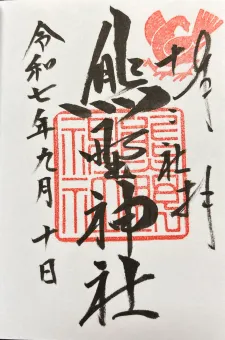 奉拝
十二社
熊野神社
令和七年九月十日